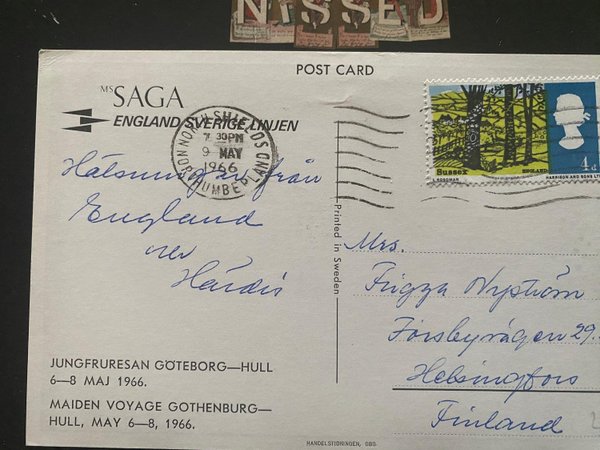 NISSED
POST CARD
MS SAGA
ENGLAND-SVERIGE LINJEN
NORTH SHIELDS
7 30PM
9 MAY
1966
NORTHUMBERLAND
Sussex ENGLAND
L ROSOMAN HARRISON AND SONS LTD
4d
Hälsningar från
England
Printed in Sweden
Mrs.
Frigga Nyström
Forsbyvägen 29.
Helsingfors
Finland
JUNGFRURESAN GÖTEBORG—HULL
6—8 MAJ 1966.
MAIDEN VOYAGE GOTHENBURG—
HULL, MAY 6—8, 1966.
HANDELSTIDNINGEN, GBG.